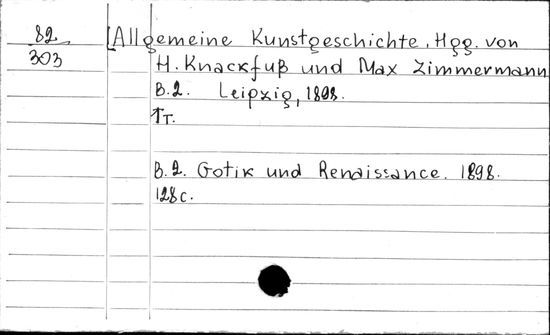 82
303
[Allgemeine Kunstgeschichte. Hgg. von
H. Knackfuß und Max Zimmermann
B.2. Leipzig, 1898.
↑T.
B.2. Gotik und Renaissance. 1898.
128c.